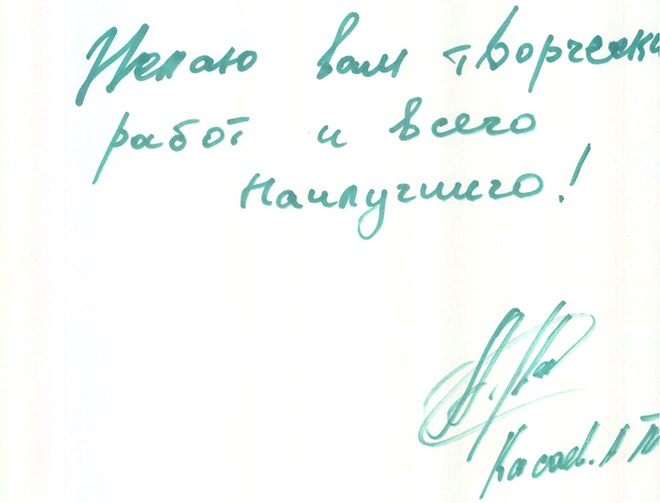 Желаю вам творчески
работ и всего
наилучшиго!
Касаев. А П